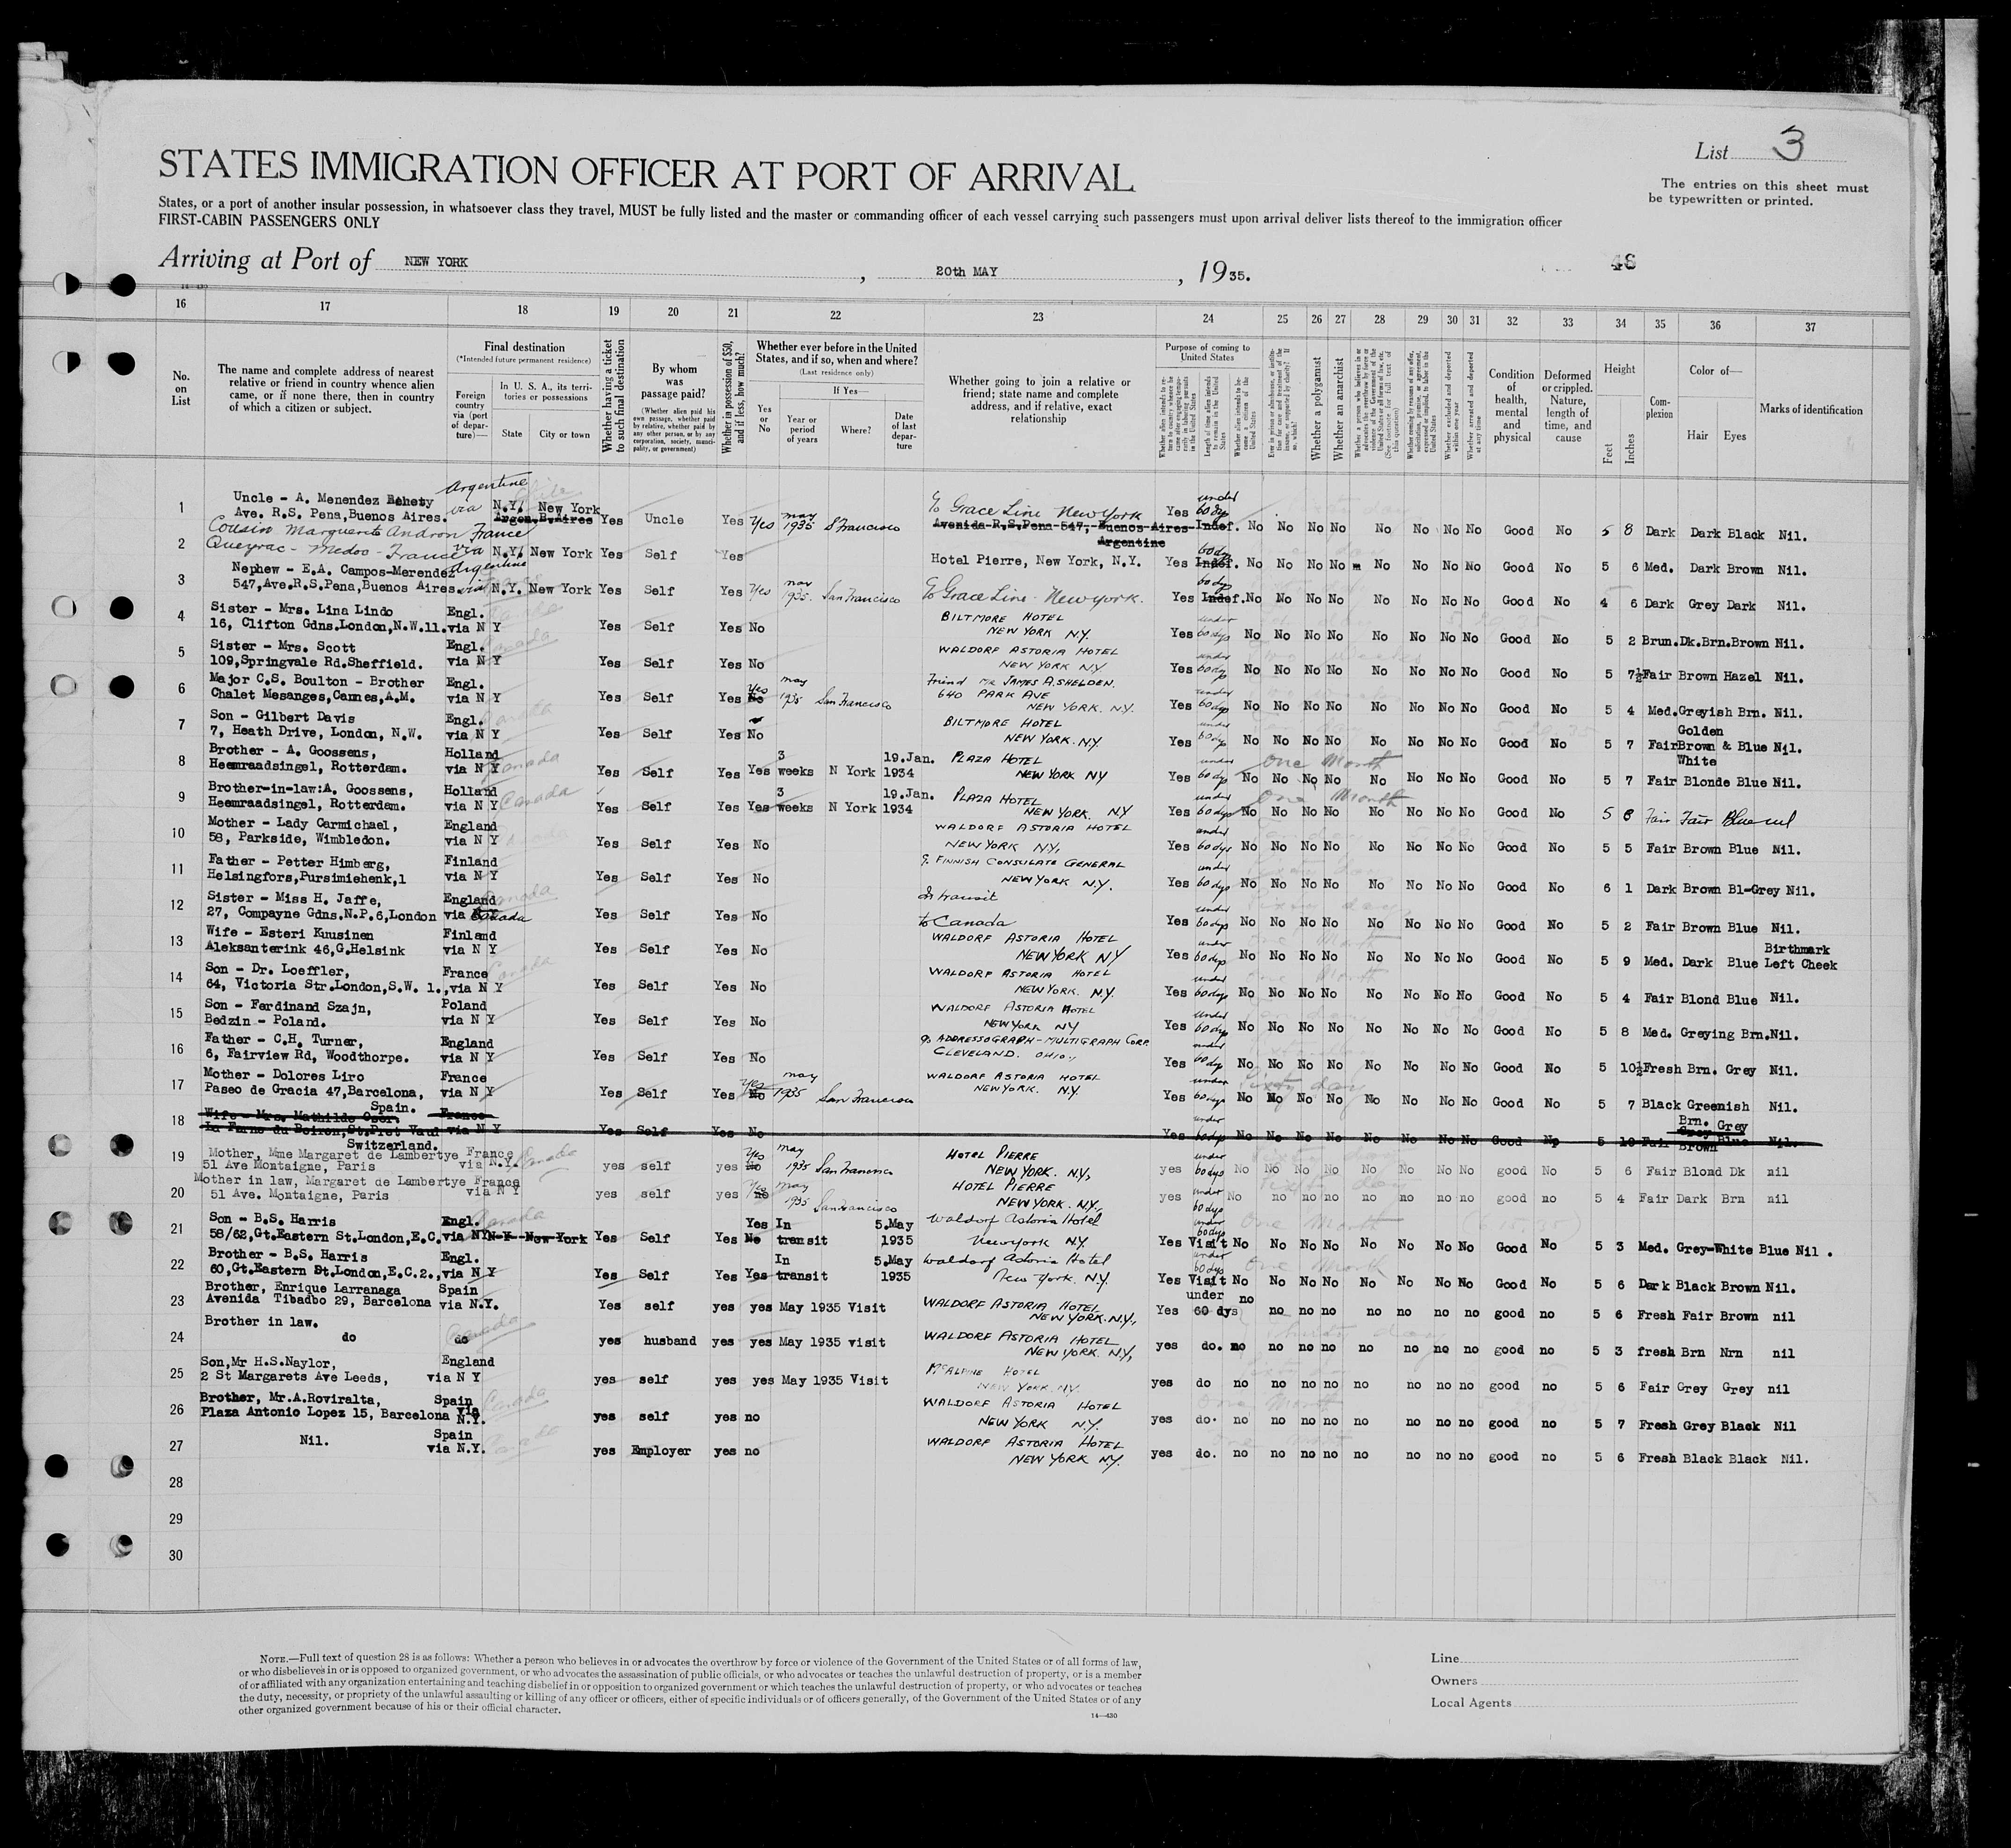 List 3
STATES IMMIGRATION OFFICER AT PORT OF ARRIVAL
The entries on this sheet must
be typewritten or printed.
States, or a port of another insular possession, in whatsoever class they travel, MUST be fully listed and the master or commanding officer of each vessel carrying such passengers must upon arrival deliver lists thereof to the immigration officer
FIRST-CABIN PASSENGERS ONLY
Arriving at Port of NEW YORK, 20th MAY, 1935.
48
16 17 18 19 20 21 22 23 24 25 26 27 28 29 30 31 32 33 34 35 36 37
No. on List
The name and complete address of nearest relative or friend in country whence alien came, or if none there, then in country of which a citizen or subject.
Final destination
(*Intended future permanent residence)
Foreign country via (port of departure)—
In U. S. A., its territories or possessions
State City or town
Whether having a ticket to such final destination
By whom was passage paid?
(Whether alien paid his own passage, whether paid by relative, whether paid by any other person, or by any corporation, society, municipality, or government)
Whether in possession of $50, and if less, how much?
Whether ever before in the United States, and if so, when and where?
(Last residence only)
Yes or No
If Yes—
Year or period of years
Where?
Date of last departure
Whether going to join a relative or friend; state name and complete address, and if relative, exact relationship
Purpose of coming to United States
Length of time alien intends to remain in the United States
Whether a polygamist
Whether an anarchist
Whether excluded and deported within one year
Whether arrested and deported at any time
Condition of health, mental and physical
Deformed or crippled. Nature, length of time, and cause
Height
Feet Inches
Complexion
Color of—
Hair Eyes
Marks of identification
1 Uncle - A. Menendez Behety Argentine
Ave. R.S. Pena, Buenos Aires. via N.Y. New York Argen. B. Aires Yes Uncle Yes Yes May 1935 S Francisco c/o Grace Line New York Avenida R.S. Pena 547, Buenos Aires Argentine Yes under 60 dys Indef. No No No No No No No No Good No 5 8 Dark Dark Black Nil.
2 Cousin Marguerite Andron France
Queyrac - Medoc - France via N.Y. New York Yes Self Yes Hotel Pierre, New York, N.Y. Yes 60 dys Indef. No No No No No No No No Good No 5 6 Med. Dark Brown Nil.
3 Nephew - E.A. Campos-Merendez Argentine
547, Ave. R.S. Pena, Buenos Aires. via N.Y. New York Yes Self Yes Yes May 1935. San Francisco c/o Grace Line - New York. Yes 60 dys Indef. No No No No No No No No Good No 4 6 Dark Grey Dark Nil.
4 Sister - Mrs. Lina Lindo Engl.
16, Clifton Gdns. London, N.W.11. via N Y Yes Self Yes No BILTMORE HOTEL NEW YORK N.Y. Yes under 60 dys No No No No No No No No Good No 5 2 Brun. Dk. Brn. Brown Nil.
5 Sister - Mrs. Scott Engl.
109, Springvale Rd. Sheffield. via N Y Yes Self Yes No WALDORF ASTORIA HOTEL NEW YORK NY Yes under 60 dys No No No No No No No No Good No 5 7½ Fair Brown Hazel Nil.
6 Major C.S. Boulton - Brother Engl.
Chalet Mesanges, Cannes, A.M. via N Y Yes Self Yes Yes No May 1935 San Francisco Friend Mr JAMES A. SHELDEN. 640 PARK AVE NEW YORK. N.Y. Yes under 60 dys No No No No No No No No Good No 5 4 Med. Greyish Brn. Nil.
7 Son - Gilbert Davis Engl.
7, Heath Drive, London, N.W. via N Y Yes Self Yes No BILTMORE HOTEL NEW YORK. N.Y. Yes under 60 dys No No No No No No No No Good No 5 7 Fair Golden Brown & White Blue Nil.
8 Brother - A. Goossens, Holland
Heemraadsingel, Rotterdam. via N Y Canada Yes Self Yes Yes 3 weeks N York 19.Jan. 1934 PLAZA HOTEL NEW YORK NY Yes under 60 dys One Month No No No No No No No No Good No 5 7 Fair Blonde Blue Nil.
9 Brother-in-law: A. Goossens, Holland
Heemraadsingel, Rotterdam. via N Y Canada Yes Self Yes Yes 3 weeks N York 19.Jan. 1934 PLAZA HOTEL NEW YORK. NY Yes under 60 dys One Month No No No No No No No No Good No 5 8 Fair Fair Blue nil
10 Mother - Lady Carmichael, England
58, Parkside, Wimbledon. via N Y Yes Self Yes No WALDORF ASTORIA HOTEL NEW YORK NY. Yes under 60 dys No No No No No No No No Good No 5 5 Fair Brown Blue Nil.
11 Father - Petter Himberg, Finland
Helsingfors, Pursimiehenk, 1 via N Y Yes Self Yes No c/o FINNISH CONSULATE GENERAL NEW YORK N.Y. Yes under 60 dys No No No No No No No No Good No 6 1 Dark Brown Bl-Grey Nil.
12 Sister - Miss H. Jaffe, England
27, Compayne Gdns. N.P.6, London via N Y Canada Yes Self Yes No In transit to Canada Yes under 60 dys No No No No No No No No Good No 5 2 Fair Brown Blue Nil.
13 Wife - Esteri Kuusinen Finland
Aleksanterink 46, G. Helsink via N Y Yes Self Yes No WALDORF ASTORIA HOTEL NEW YORK NY Yes under 60 dys No No No No No No No No Good No 5 9 Med. Dark Blue Birthmark Left Cheek
14 Son - Dr. Loeffler, France
64, Victoria Str. London, S.W. 1., via N Y Yes Self Yes No WALDORF ASTORIA HOTEL NEW YORK. N.Y. Yes under 60 dys No No No No No No No No Good No 5 4 Fair Blond Blue Nil.
15 Son - Ferdinand Szajn, Poland
Bedzin - Poland. via N Y Yes Self Yes No WALDORF ASTORIA HOTEL NEW YORK NY Yes under 60 dys No No No No No No No No Good No 5 8 Med. Greying Brn. Nil.
16 Father - C.H. Turner, England
6, Fairview Rd, Woodthorpe. via N Y Yes Self Yes No c/o ADDRESSOGRAPH-MULTIGRAPH CORP. CLEVELAND. OHIO. Yes under 60 dys No No No No No No No No Good No 5 10½ Fresh Brn. Grey Nil.
17 Mother - Dolores Liro France
Paseo de Gracia 47, Barcelona, Spain. via N Y Yes Self Yes Yes No May 1935 San Francisco WALDORF ASTORIA HOTEL NEW YORK. N.Y. Yes under 60 dys Sixty days No No No No No No No No Good No 5 7 Black Greenish Brn. Grey Nil.
18 Wife - Mrs. Mathilde Oser. France
Switzerland. via N Y Yes Self Yes No Yes under 60 dys No No No No No No No No Good No 5 10 Fair Grey Brown Blue Nil.
19 Mother, Mme Margaret de Lambertye France
51 Ave Montaigne, Paris via N.Y. Canada yes self yes Yes no May 1935 San Francisco HOTEL PIERRE NEW YORK. N.Y. yes under 60 dys No No No No No No No No good No 5 6 Fair Blond Dk nil
20 Mother in law, Margaret de Lambertye France
51 Ave. Montaigne, Paris via N Y yes self yes Yes no May 1935 San Francisco HOTEL PIERRE NEW YORK. N.Y. yes under 60 dys No no no no no no no no good no 5 4 Fair Dark Brn nil
21 Son - B.S. Harris Engl. Canada
58/62, Gt. Eastern St. London, E.C. via NY N.Y. New York Yes Self Yes Yes No In transit 5.May 1935 Waldorf Astoria Hotel New York N.Y. Yes under 60 dys Visit One Month No No No No No No No No Good No 5 3 Med. Grey-White Blue Nil.
22 Brother - B.S. Harris Engl.
60, Gt. Eastern St. London, E.C.2., via N Y Yes Self Yes Yes In transit 5.May 1935 Waldorf Astoria Hotel New York. N.Y. Yes under 60 dys Visit One Month No No No No No No No No Good No 5 6 Dark Black Brown Nil.
23 Brother, Enrique Larranaga Spain
Avenida Tibadbo 29, Barcelona via N.Y. Yes self yes yes May 1935 Visit WALDORF ASTORIA HOTEL NEW YORK. N.Y. Yes under 60 dys no no no no no no no no good no 5 6 Fresh Fair Brown nil
24 Brother in law.
do do Canada yes husband yes yes May 1935 visit WALDORF ASTORIA HOTEL NEW YORK. N.Y. yes do. no no no no no no no no good no 5 3 fresh Brn Nrn nil
25 Son, Mr H.S. Naylor, England
2 St Margarets Ave Leeds, via N Y yes self yes yes May 1935 Visit McALPINE HOTEL NEW YORK. N.Y. yes do no no no no no no no no good no 5 6 Fair Grey Grey nil
26 Brother, Mr. A. Roviralta, Spain
Plaza Antonio Lopez 15, Barcelona via N.Y. Canada yes self yes no WALDORF ASTORIA HOTEL NEW YORK N.Y. yes do. no no no no no no no no good no 5 7 Fresh Grey Black Nil
27 Nil. Spain
via N.Y. yes Employer yes no WALDORF ASTORIA HOTEL NEW YORK N.Y. yes do. no no no no no no no no good no 5 6 Fresh Black Black Nil.
28
29
30
NOTE.—Full text of question 28 is as follows: Whether a person who believes in or advocates the overthrow by force or violence of the Government of the United States or of all forms of law,
or who disbelieves in or is opposed to organized government, or who advocates the assassination of public officials, or who advocates or teaches the unlawful destruction of property, or is a member
of or affiliated with any organization entertaining and teaching disbelief in or opposition to organized government or which teaches the unlawful destruction of property, or who advocates or teaches
the duty, necessity, or propriety of the unlawful assaulting or killing of any officer or officers, either of specific individuals or of officers generally, of the Government of the United States or of any
other organized government because of his or their official character.
14—430
Line
Owners
Local Agents